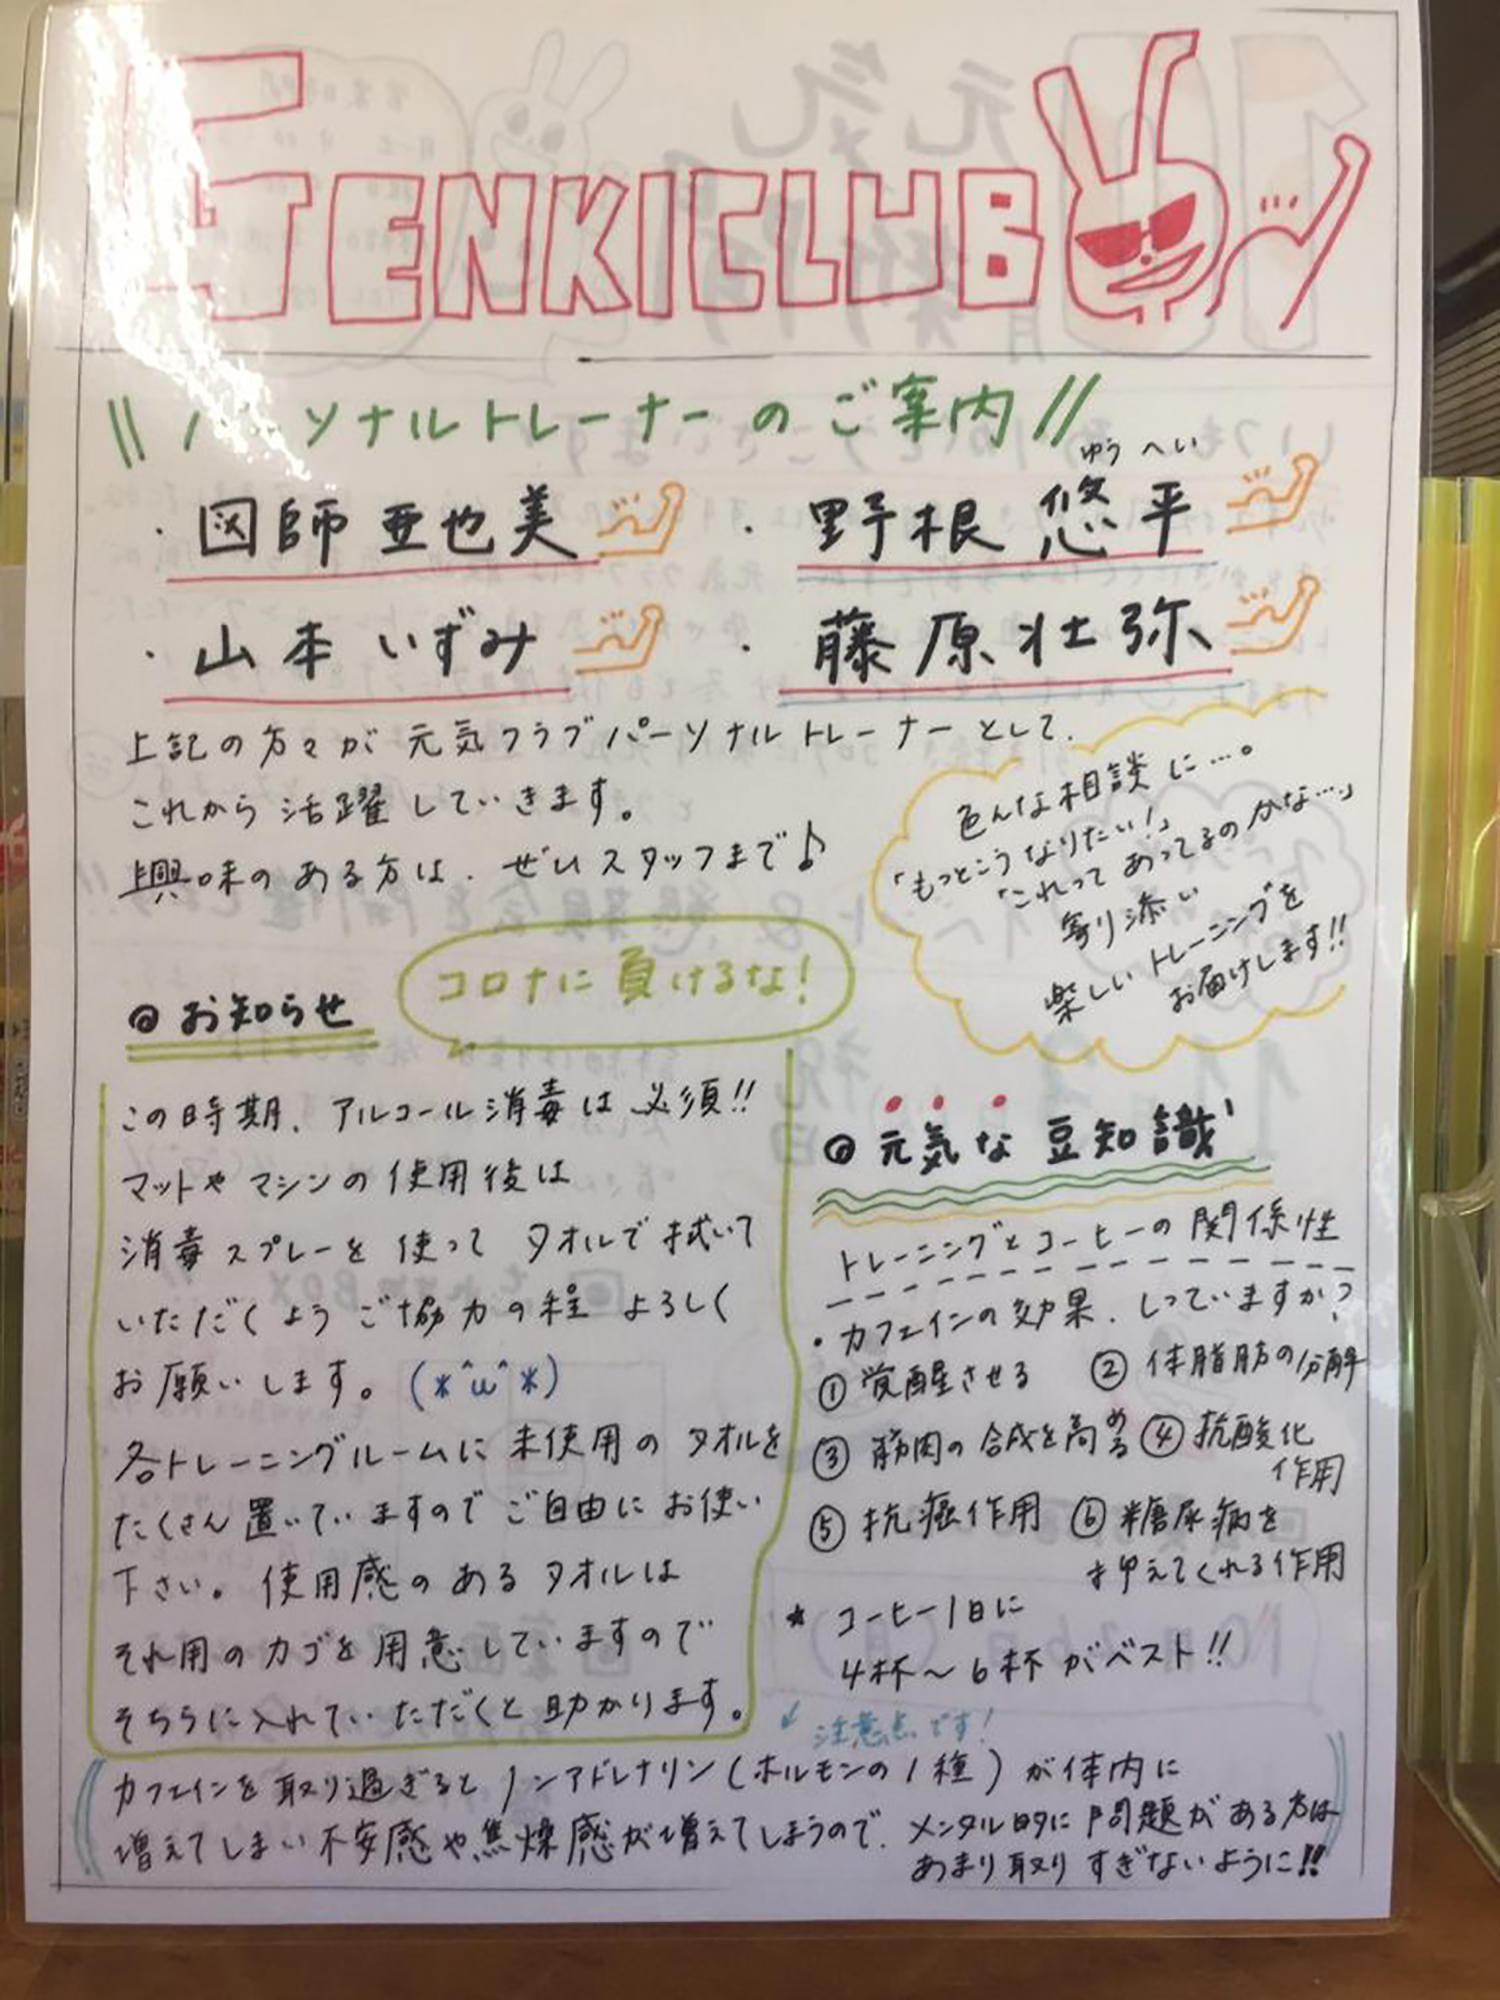 GENKICLUB
\\パーソナルトレーナーのご案内//
・図師 亜也美
・野根 悠平
ゆう へい
・山本 いずみ
・藤原 壮弥
上記の方々が 元気クラブパーソナルトレーナーとして、
これから 活躍していきます。
興味のある方は、ぜひスタッフまで♪
色んな相談に…。
「もっとこうなりたい!」
「これって あってるのかな…」
寄り添い
楽しいトレーニングを
お届けします!!
◎ お知らせ
コロナに負けるな!
この時期、アルコール消毒は必須!!
マットやマシンの使用後は
消毒スプレーを使って タオルで拭いて
いただくよう ご協力の程 よろしく
お願いします。(*^ω^*)
各トレーニングルームに未使用のタオルを
たくさん置いていますのでご自由にお使い
下さい。使用感のあるタオルは
それ用のカゴを用意していますので
そちらに入れていただくと助かります。
◎ 元気な豆知識
トレーニングとコーヒーの関係性
・カフェインの効果、しっていますか?
① 覚醒させる ② 体脂肪の分解
③ 筋肉の合成を高める ④ 抗酸化
作用
⑤ 抗癌作用 ⑥ 糖尿病を
抑えてくれる作用
* コーヒー1日に
4杯～6杯がベスト!!
注意点です!
カフェインを取り過ぎるとノンアドレナリン(ホルモンの1種)が体内に
増えてしまい不安感や焦燥感が増えてしまうので、メンタル的に問題がある方は
あまり取りすぎないように!!